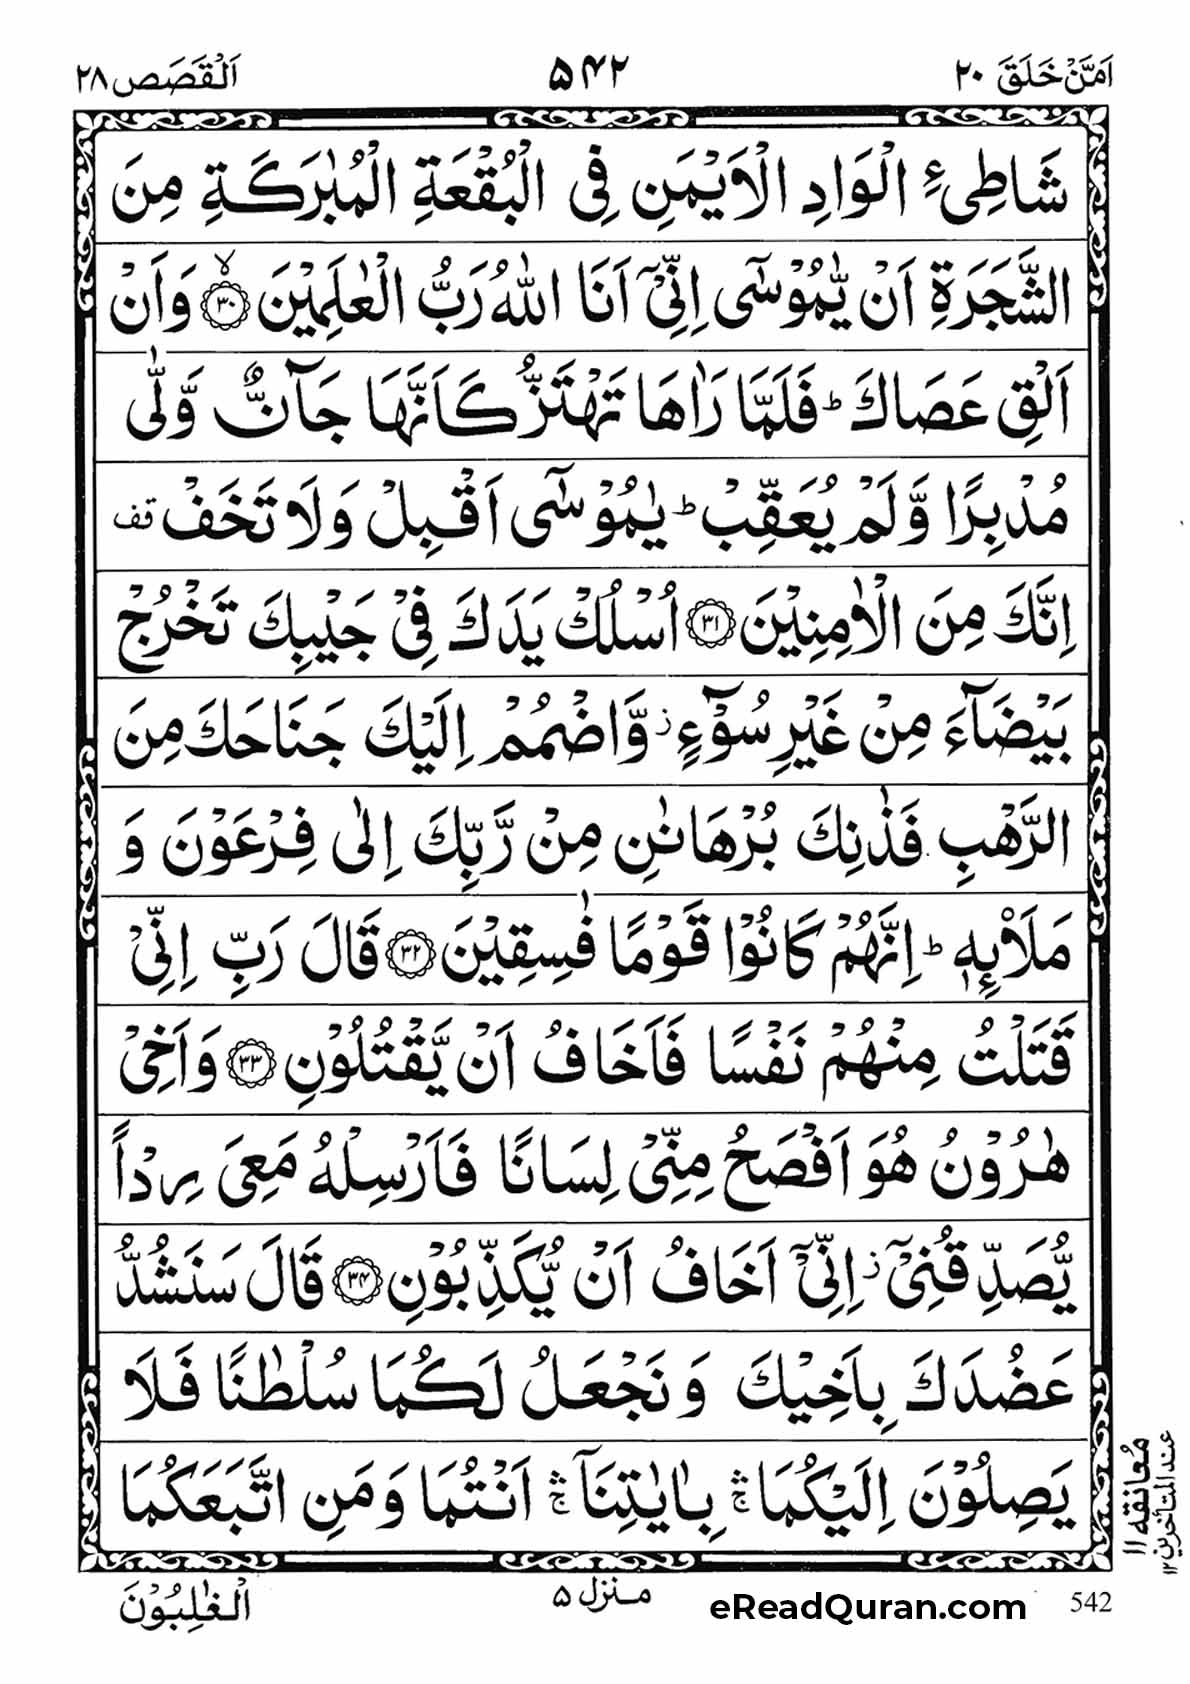 اَمَّنْ خَلَقَ ٢٠ ۵۴۲ اَلْقَصَص ٢٨
شَاطِیءِ الْوَادِ الْاَیْمَنِ فِی الْبُقْعَةِ الْمُبٰرَكَةِ مِنَ
الشَّجَرَةِ اَنْ یّٰمُوْسٰۤی اِنِّیْۤ اَنَا اللّٰهُ رَبُّ الْعٰلَمِیْنَ ﴿٣٠﴾ۙ وَاَنْ
اَلْقِ عَصَاكَ ؕ فَلَمَّا رَاٰهَا تَهْتَزُّ كَاَنَّهَا جَآنٌّ وَّلّٰی
مُدْبِرًا وَّلَمْ یُعَقِّبْ ؕ یٰمُوْسٰۤی اَقْبِلْ وَلَا تَخَفْ قف
اِنَّكَ مِنَ الْاٰمِنِیْنَ ﴿٣١﴾ اُسْلُكْ یَدَكَ فِیْ جَیْبِكَ تَخْرُجْ
بَیْضَآءَ مِنْ غَیْرِ سُوْٓءٍ ز وَّاضْمُمْ اِلَیْكَ جَنَاحَكَ مِنَ
الرَّهْبِ فَذٰنِكَ بُرْهَانٰنِ مِنْ رَّبِّكَ اِلٰی فِرْعَوْنَ وَ
مَلَا۟ىِٕهٖ ؕ اِنَّهُمْ كَانُوْا قَوْمًا فٰسِقِیْنَ ﴿٣٢﴾ قَالَ رَبِّ اِنِّیْ
قَتَلْتُ مِنْهُمْ نَفْسًا فَاَخَافُ اَنْ یَّقْتُلُوْنِ ﴿٣٣﴾ وَاَخِیْ
هٰرُوْنُ هُوَ اَفْصَحُ مِنِّیْ لِسَانًا فَاَرْسِلْهُ مَعِیَ رِدْاً
یُّصَدِّقُنِیْۤ ز اِنِّیْۤ اَخَافُ اَنْ یُّكَذِّبُوْنِ ﴿٣۴﴾ قَالَ سَنَشُدُّ
عَضُدَكَ بِاَخِیْكَ وَنَجْعَلُ لَكُمَا سُلْطٰنًا فَلَا
یَصِلُوْنَ اِلَیْكُمَا ۛۚ بِاٰیٰتِنَاۤ ۛۚ اَنْتُمَا وَمَنِ اتَّبَعَكُمَا
مُعانقه ١١
عند المتأخرین ١٢
الْغٰلِبُوْنَ
منزل ۵
eReadQuran.com
542